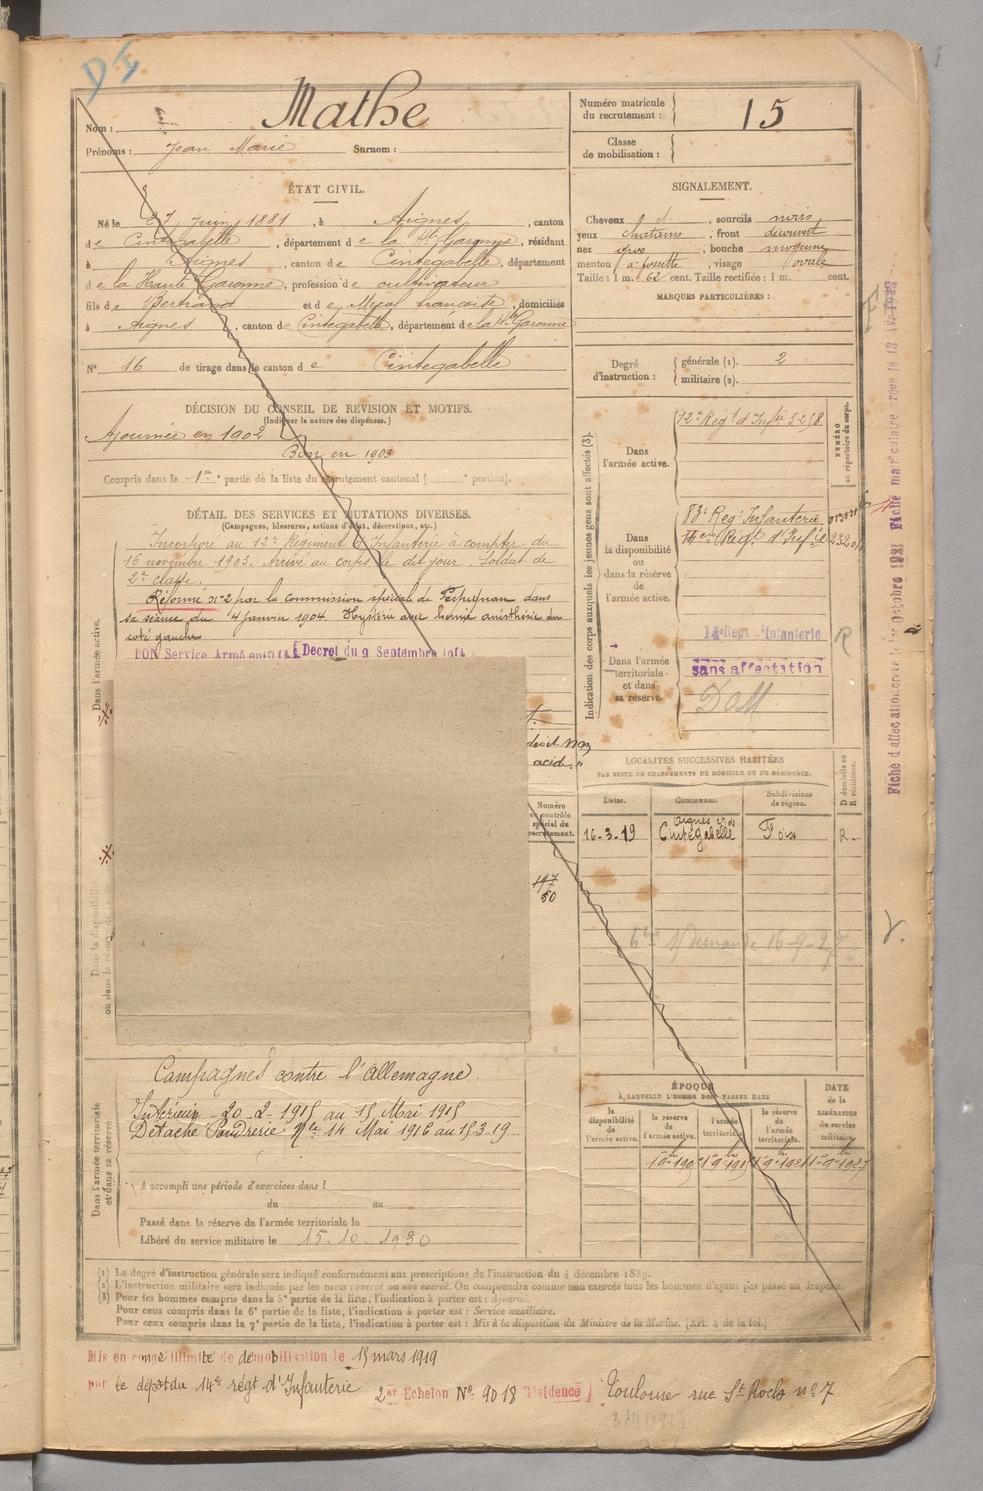 Mathe
Nom :
Prénoms : Jean Marie Surnom :
Numéro matricule du recrutement : 15
Classe de mobilisation :
ÉTAT CIVIL.
Né le 27 Juin 1881, à Aignes, canton
de Cintegabelle, département de la Hte Garonne, résidant
à Aignes, canton de Cintegabelle, département
de la Haute Garonne, profession de cultivateur
fils de Bertrand et de française, domiciliés
à Aignes, canton de Cintegabelle, département de la Hte Garonne
N° 16 de tirage dans le canton de Cintegabelle
SIGNALEMENT.
Cheveux et, sourcils noirs,
yeux chatains, front découvert
nez gros, bouche moyenne,
menton à fossette, visage ovale
Taille : 1 m. 62 cent. Taille rectifiée : 1 m. cent.
MARQUES PARTICULIÈRES :
Degré d'instruction : générale (1). 2
militaire (2).
DÉCISION DU CONSEIL DE REVISION ET MOTIFS.
(Indiquer la nature des dispenses.)
Ajourné en 1902
Bon en 1903
Compris dans la 1re partie de la liste du recrutement cantonal ( portion).
DÉTAIL DES SERVICES ET MUTATIONS DIVERSES.
(Campagnes, blessures, actions d'éclat, décorations, etc.)
Dans l'armée active.
Incorporé au 12e Régiment d'Infanterie à compter du
16 novembre 1903. Arrivé au corps le dit jour. Soldat de
2e classe.
Réformé n° 2 par la Commission spéciale de Perpignan dans
sa séance du 4 janvier 1904. Hystérie avec hemi anésthésie du
coté gauche
BON Service Armé Decret du 9 Septembre 1914
Indication des corps auxquels les jeunes gens sont affectés (3).
NUMÉRO au répertoire du corps.
Dans l'armée active. 12e Régt d'Infie 5258
Dans la disponibilité ou dans la réserve de l'armée active.
83e Reg. Infanterie
14e Régt d'Infie
Dans l'armée territoriale et dans sa réserve.
14e Régt Infanterie R
sans affectation
DOM
Fiche d'affectation créée le 1er Octobre 1921 Fiche matriculaire créée le
droit
acid.
LOCALITÉS SUCCESSIVES HABITÉES
PAR SUITE DE CHANGEMENTS DE DOMICILE OU DE RÉSIDENCE.
Dates. Communes. Subdivisions de région. D domicile ou R résidence.
16-3-19 Aignes Cintegabelle Foix R.
Numéro au contrôle spécial du recrutement.
197
80
16-9-27
Dans la disponibilité ou dans la réserve de
Dans l'armée territoriale et dans sa réserve.
Campagnes contre l'Allemagne.
Intérieur - 20-2-1915 au 15 Mai 1915
Détaché Poudrerie Nle 14 Mai 1916 au 15.3.19
A accompli une période d'exercices dans l
du au
Passé dans la réserve de l'armée territoriale le
Libéré du service militaire le 15.10.1930
ÉPOQUE
À LAQUELLE L'HOMME DOIT PASSER DANS
la disponibilité de l'armée active.
la réserve de l'armée active.
l'armée territoriale.
la réserve de l'armée territoriale.
DATE de la LIBÉRATION du service militaire.
(1) Le degré d'instruction générale sera indiqué conformément aux prescriptions de l'instruction du 4 décembre 1889.
(2) L'instruction militaire sera indiquée par les mots : exercé ou non exercé. On comprendra comme non exercés tous les hommes n'ayant pas passé au drapeau.
(3) Pour les hommes compris dans la 5e partie de la liste, l'indication à porter est : Ajourné.
Pour ceux compris dans la 6e partie de la liste, l'indication à porter est : Service auxiliaire.
Pour ceux compris dans la 7e partie de la liste, l'indication à porter est : Mis à la disposition du Ministre de la Marine. (Art. 4 de la loi.)
Mis en congé illimité de démobilisation le 15 mars 1919
par le dépôt du 14e régt d'Infanterie 2er Echelon N° 9018 Résidence Toulouse rue St Roch n° 7